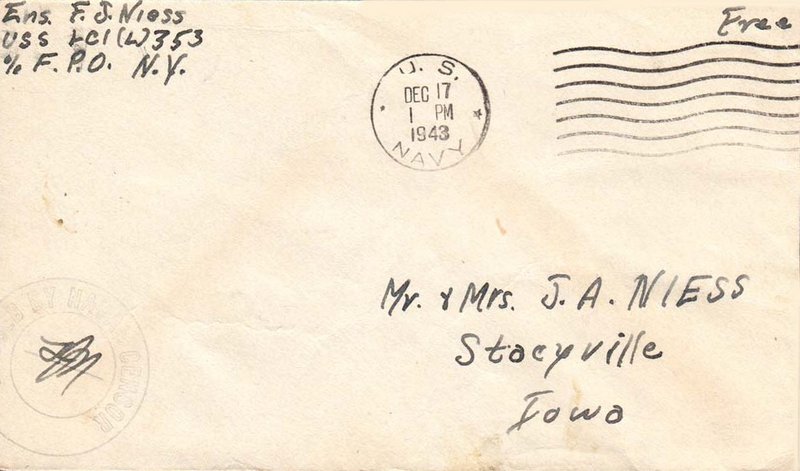 Ens. F. J. Niess
USS LCI (L) 353
% F. P. O. N. Y.
Free
U. S.
DEC 17
1 PM
1943
NAVY
Mr. & Mrs. J. A. NIESS
Stacyville
Iowa
BY NAVAL CENSOR